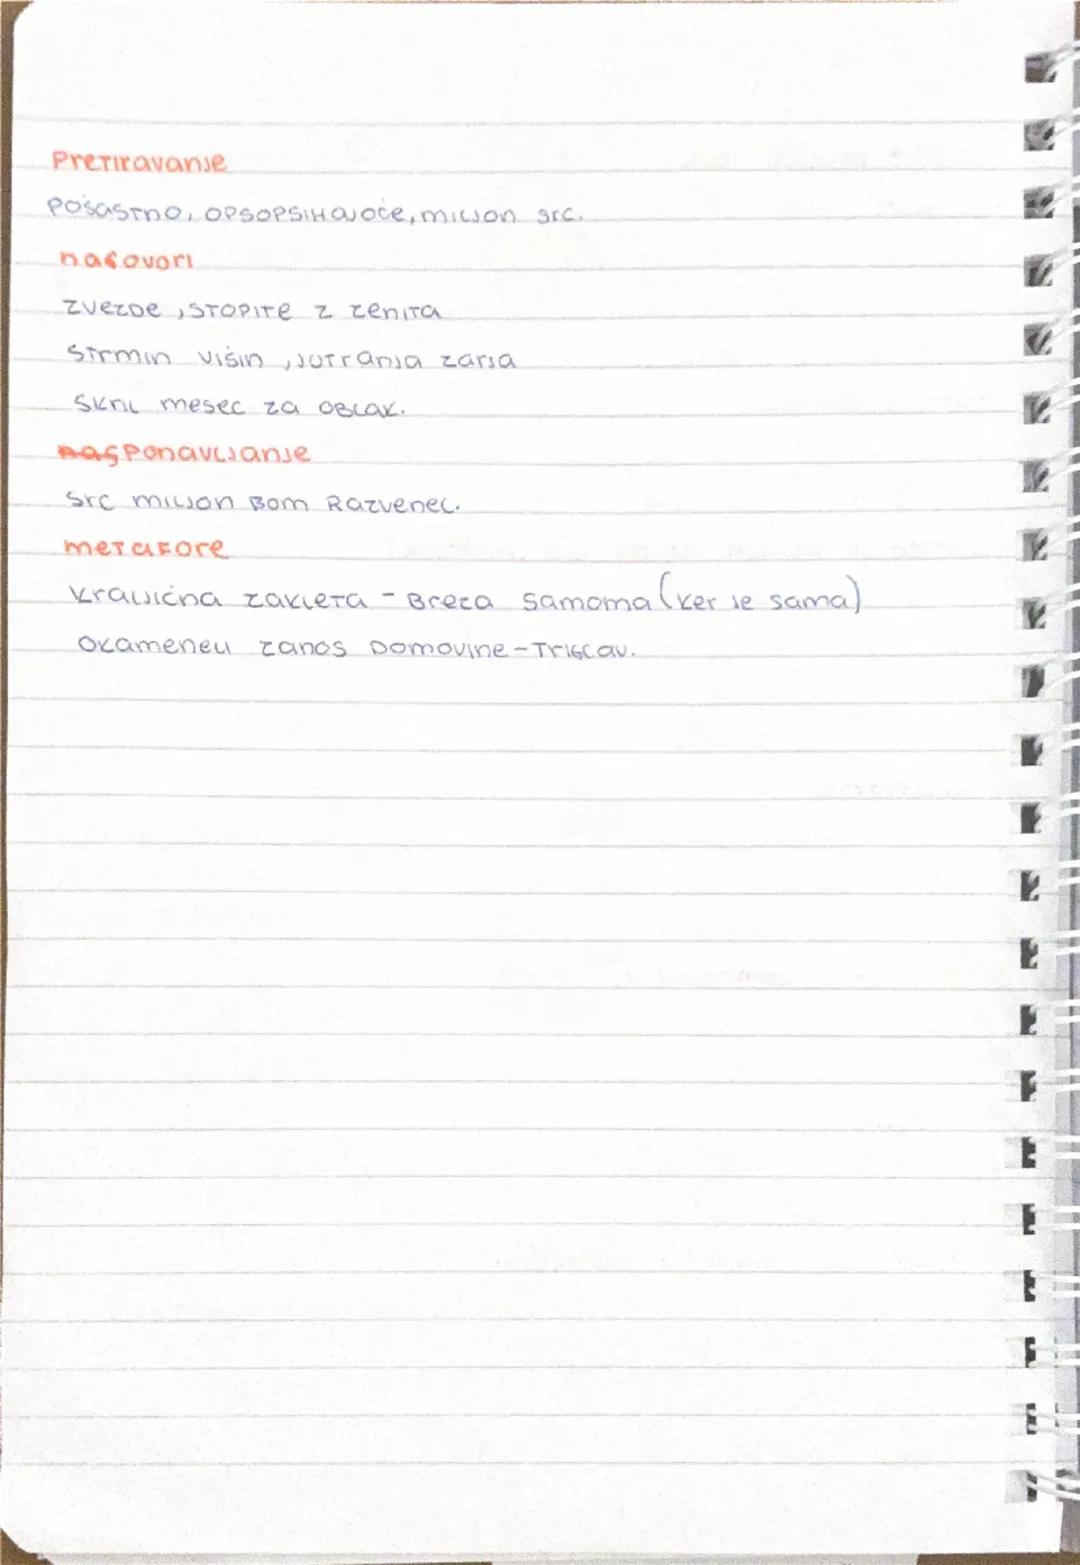 Pretiravanje
Pošastno, OPSOPSIHajoče, milijon src.
nagovori
zvezde, STOPITE z zenita
strmin višin, jutranja zarja
Skril mesec za oblak.
nag Ponavljanje
Src milijon Bom Razvenel.
metafore
Kraljična zakleta - Breza samoma (ker je sama)
Okameneli zanos Domovine - Triglav.